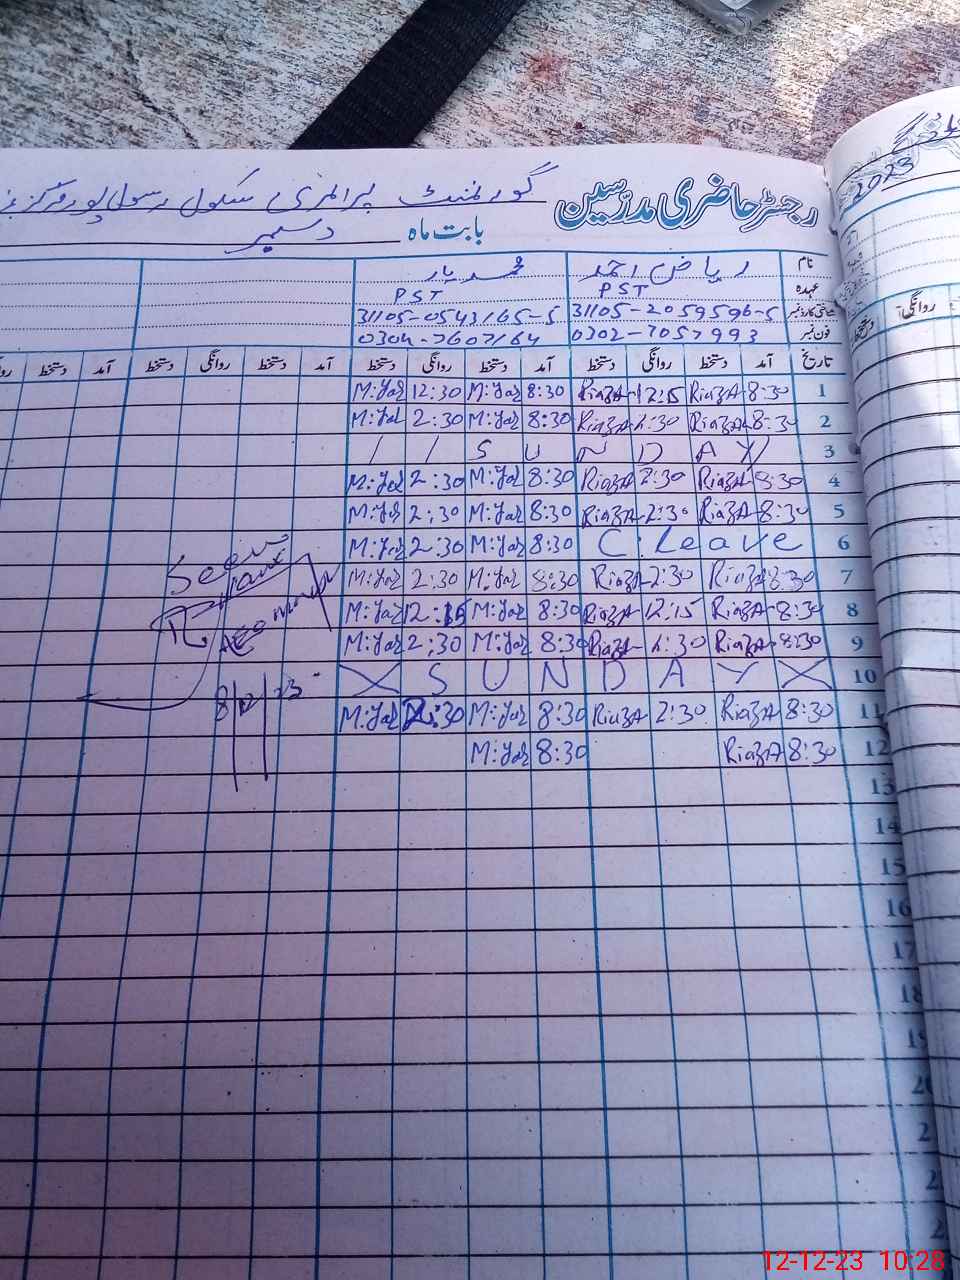 رجسٹر حاضری مدرسین گورنمنٹ پرائمری سکول رسول پور مرکز
بابت ماہ دسمبر
2023
نام ریاض احمد محمد یار
عہدہ PST PST
شناختی کارڈ نمبر 31105-2059596-5 31105-0543165-5
فون نمبر 0302-7057993 0304-7607164
تاریخ آمد دستخط روانگی دستخط آمد دستخط روانگی دستخط آمد دستخط روانگی دستخط آمد دستخط
1 8:30 RiazA 12:15 RiazA 8:30 M:Yar 12:30 M:Yar
2 8:30 RiazA 2:30 RiazA 8:30 M:Yar 2:30 M:Yar
3 / / S U N D A Y
4 8:30 RiazA 2:30 RiazA 8:30 M:Yar 2:30 M:Yar
5 8:30 RiazA 2:30 RiazA 8:30 M:Yar 2:30 M:Yar
6 C.Leave 8:30 M:Yar 2:30 M:Yar
7 8:30 RiazA 2:30 RiazA 8:30 M:Yar 2:30 M:Yar
8 8:30 RiazA 12:15 RiazA 8:30 M:Yar 12:15 M:Yar
9 8:30 RiazA 2:30 RiazA 8:30 M:Yar 2:30 M:Yar
10 X S U N D A Y X
11 8:30 RiazA 2:30 RiazA 8:30 M:Yar 2:30 M:Yar
12 8:30 RiazA 8:30 M:Yar
13
14
15
16
17
18
Seen
AEO
8/12/23
روانگی
دستخط
12-12-23 10:28